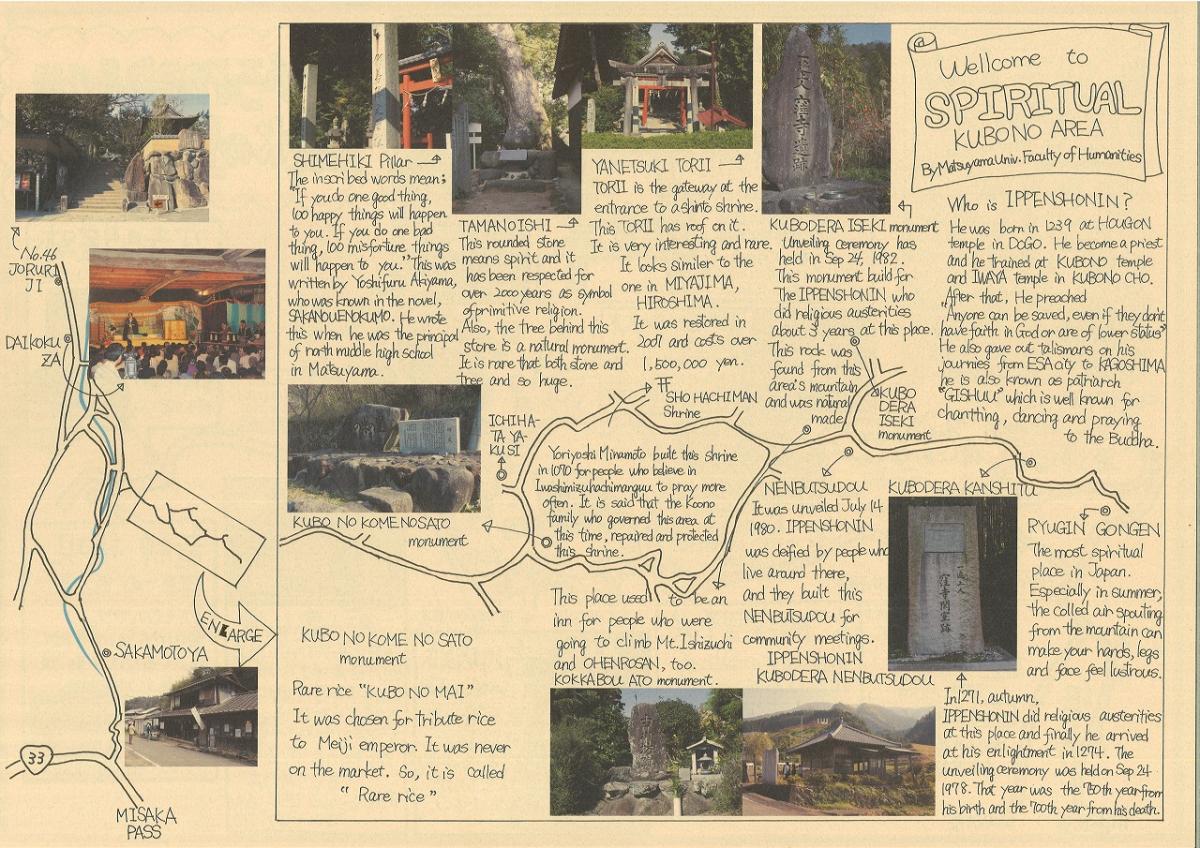 Wellcome to
SPIRITUAL
KUBONO AREA
By Matsuyama Univ. Faculty of Humanities
No.46
JORURI
JI
DAIKOKU
ZA
ENLARGE
SAKAMOTOYA
33
MISAKA
PASS
SHIMEHIKI Pillar
The inscribed words mean;
"If you do one good thing,
100 happy things will happen
to you. If you do one bad
thing, 100 misfortune things
will happen to you." This was
written by Yoshifuru Akiyama,
who was known in the novel,
SAKANOUENOKUMO. He wrote
this when he was the principal
of north middle high school
in Matsuyama.
TAMANOISHI
This rounded stone
means spirit and it
has been respected for
over 2000 years as symbol
of primitive religion.
Also, the tree behind this
store is a natural monument.
It is rare that both stone and
tree and so huge.
YANETSUKI TORII
TORII is the gateway at the
entrance to a shinto shrine.
This TORII has roof on it.
It is very interesting and rare.
It looks similar to the
one in MIYAJIMA,
HIROSHIMA.
It was restored in
2007 and costs over
1,500,000 yen.
KUBODERA ISEKI monument
Unveiling ceremony has
held in Sep 24, 1982.
This monument build for
The IPPENSHONIN who
did religious austerities
about 3 years at this place.
This rock was
found from this
area's mountain
and was natural
made
Who is IPPENSHONIN?
He was born in 1239 at HOUGON
temple in DOGO. He become a priest
and he trained at KUBONO temple
and IWAYA temple in KUBONO CHO.
After that, He preached
"Anyone can be saved, even if they don't
have faith in God or are of lower status"
He also gave out talismans on his
journies from ESA city to KAGOSHIMA
he is also known as patriarch
"GISHUU" which is well known for
chantting, dancing and praying
to the Buddha.
KUBO NO KOMENOSATO
monument
ICHIHA-
TA YA-
KUSI
SHO HACHIMAN
Shrine
KUBO
DERA
ISEKI
monument
Yoriyoshi Minamoto built this shrine
in 1070 for people who believe in
Iwashimizuhachimanguu to pray more
often. It is said that the Koono
family who governed this area at
this time, repaired and protected
this shrine.
NENBUTSUDOU
It was unveiled July 14
1980. IPPENSHONIN
was deified by people who
live around there,
and they built this
NENBUTSUDOU for
community meetings.
IPPENSHONIN
KUBODERA NENBUTSUDOU
KUBODERA KANSHITU
RYUGIN GONGEN
The most spiritual
place in Japan.
Especially in summer,
the colled air spouting
from the mountain can
make your hands, legs
and face feel lustrous.
This place used to be an
inn for people who were
going to climb Mt. Ishizuchi
and OHENROSAN, too.
KOKKABOU ATO monument.
KUBO NO KOME NO SATO
monument
Rare rice "KUBO NO MAI"
It was chosen for tribute rice
to Meiji emperor. It was never
on the market. So, it is called
"Rare rice"
In 1271, autumn,
IPPENSHONIN did religious austerities
at this place and finally he arrived
at his enlightment in 1274. The
unveiling ceremony was held on Sep 24
1978. That year was the 750th year from
his birth and the 700th year from his death.
一遍上人
窪寺閑室跡